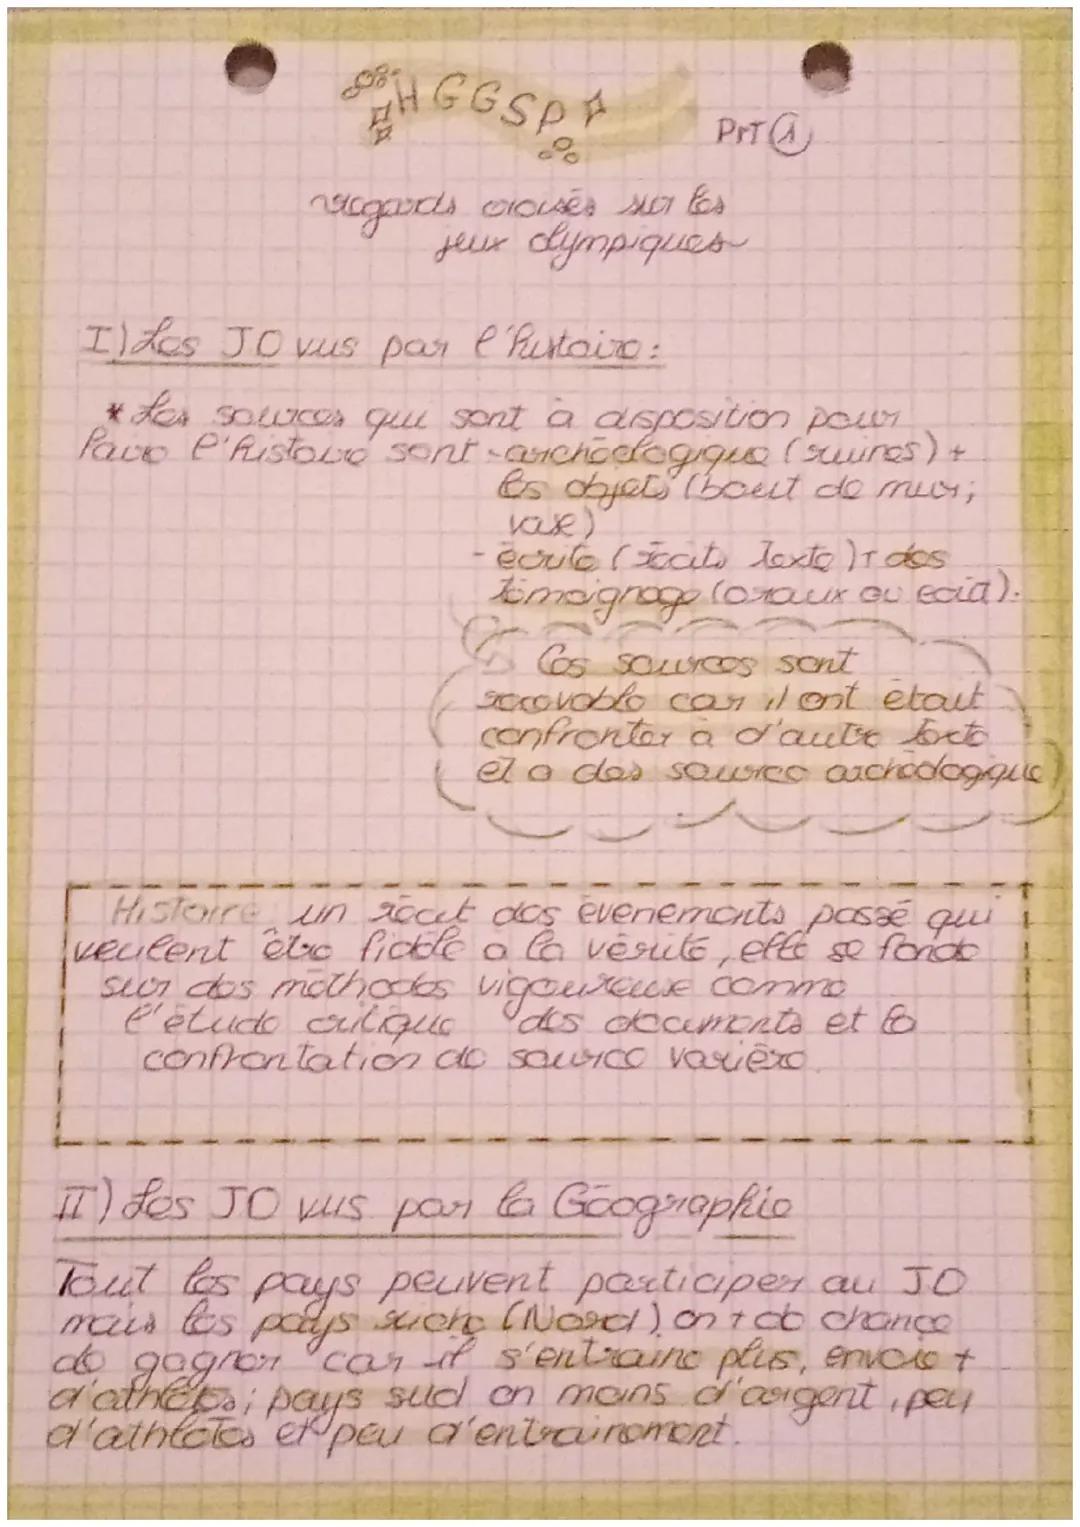 HGGSP
PrT 1
regards croisés sur les
jeux olympiques
I) Les JO vus par l'histoire:
* Les sources qui sont à disposition pour
faire l'histoire sont - archéologique (ruines) +
les objets (bout de mur;
vase)
- écrite (récits texte) + des
témoignage (oraux ou ecrit).
Ces sources sont
recevable car il ont était
confronter à d'autre texte
et a des source archéologique
Histoire un récit des évènements passé qui
veulent être fidèle a la vérité, elle se fonde
sur des méthodes vigoureuse comme
l'étude critique des documents et la
confrontation de source varière.
II) Les JO vus par la Géographie
Tout les pays peuvent participer au JO
mais les pays riche (Nord) on + de chance
de gagner car il s'entraine plus, envoie +
d'athlètes; pays sud on moins d'argent, peu
d'athlètes et peu d'entrainement.